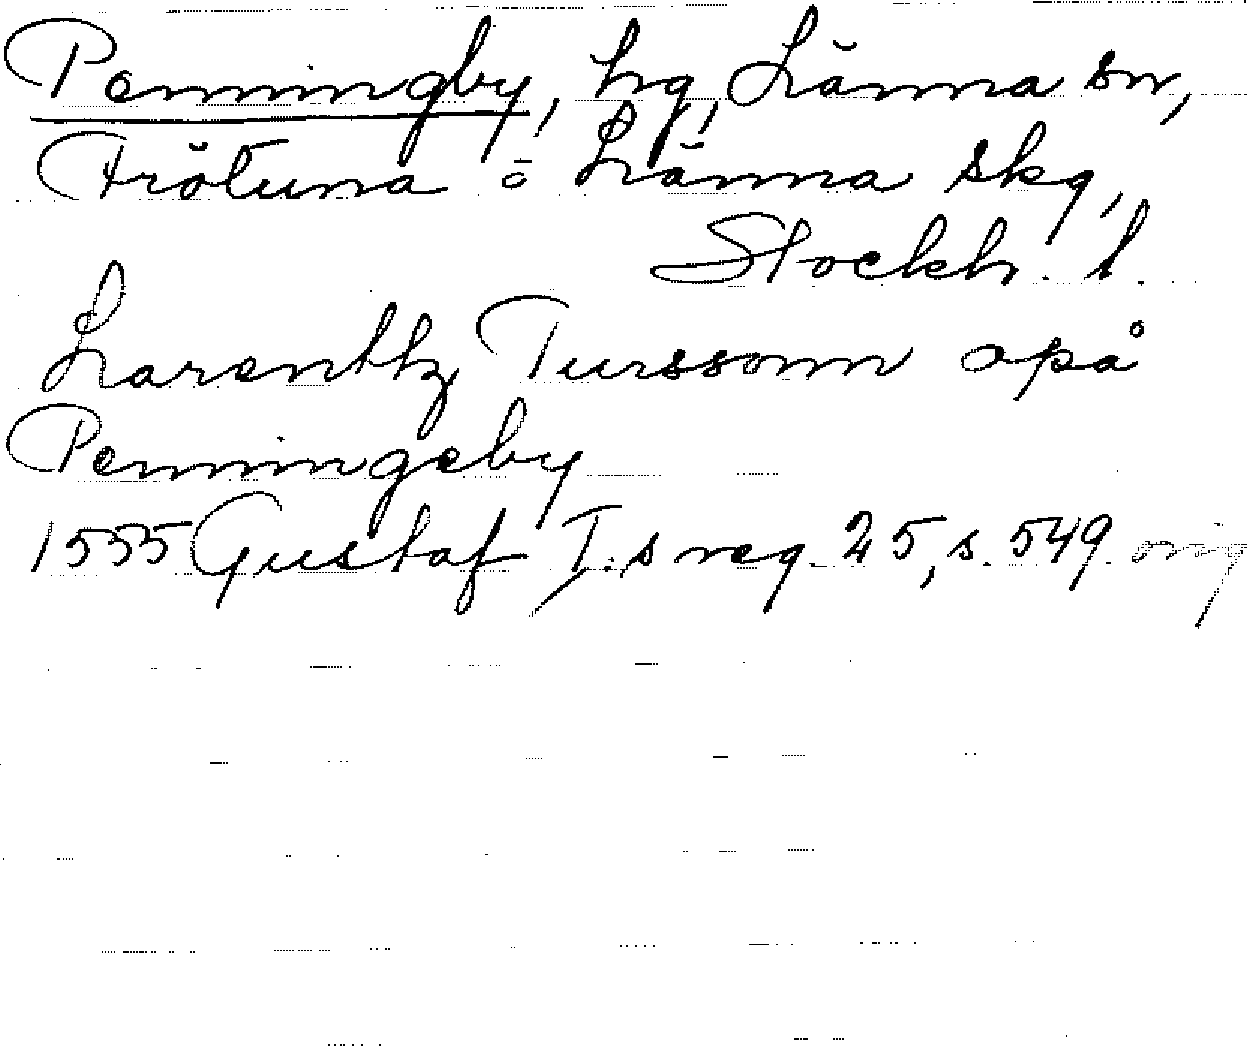 Penningby, hg, Länna sn,
Frötuna o Länna skg,
Stockh. l.
Larenttz Turssonn apå
Penningeby
1555 Gustaf I:s reg. 25, s. 549 orig